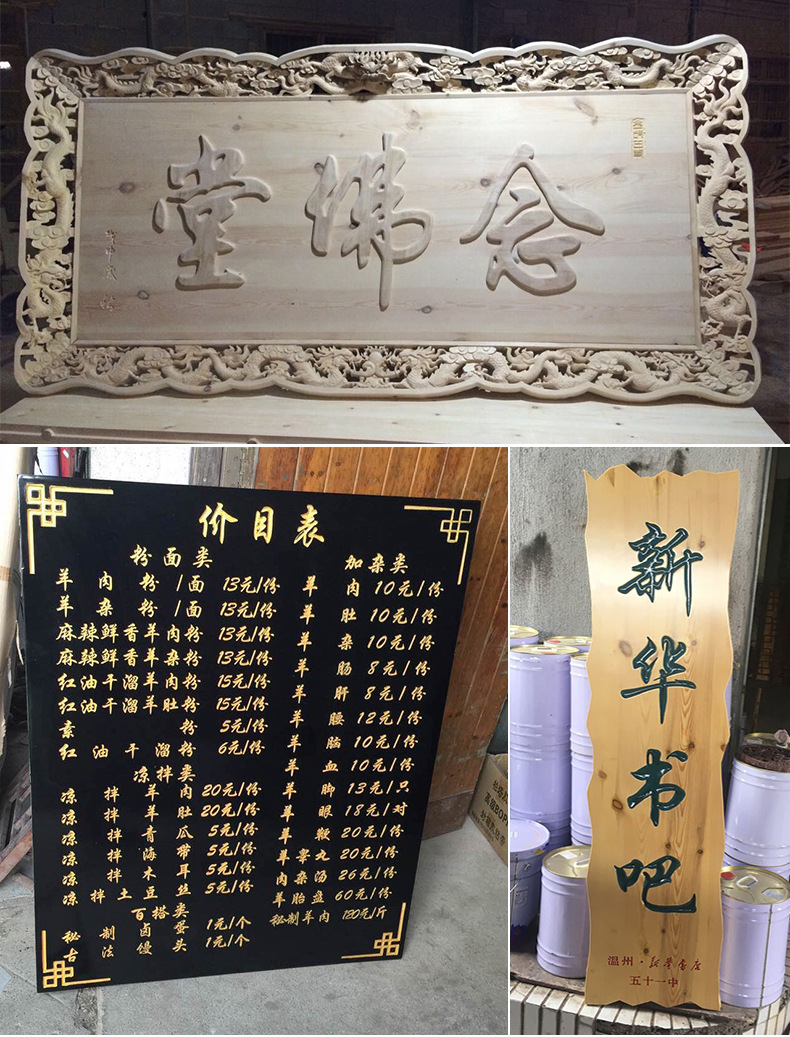 念佛堂
价目表
粉面类
羊肉粉/面 13元/份
羊杂粉/面 13元/份
麻辣鲜香羊肉粉 13元/份
麻辣鲜香羊杂粉 13元/份
红油干溜羊肉粉 15元/份
红油干溜羊肚粉 15元/份
素粉 5元/份
红油干溜粉 6元/份
凉拌类
凉拌羊肉 20元/份
凉拌羊肚 20元/份
凉拌青瓜 5元/份
凉拌海带 5元/份
凉拌木耳 5元/份
凉拌土豆丝 5元/份
百搭类
秘制卤蛋 1元/个
古法馒头 1元/个
加杂类
羊肉 10元/份
羊肚 10元/份
羊杂 10元/份
羊肠 8元/份
羊肝 8元/份
羊腰 12元/份
羊脑 10元/份
羊血 10元/份
羊脚 13元/只
羊眼 18元/对
羊鞭 20元/份
羊睾丸 20元/份
肉杂汤 26元/份
羊胎盘 60元/份
秘制羊肉 120元/斤
新华书吧
温州·新华书店
五十一中